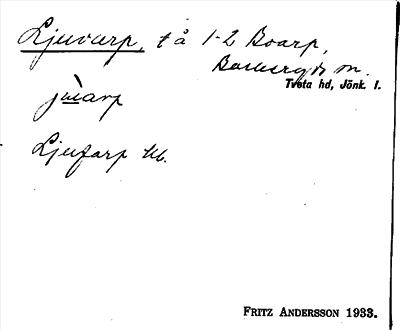 Ljuvarp, t å 1-2 Boarp,
Barkeryds sn.
Tveta hd, Jönk. l.
jùarp
Ljufarp
FRITZ ANDERSSON 1933.